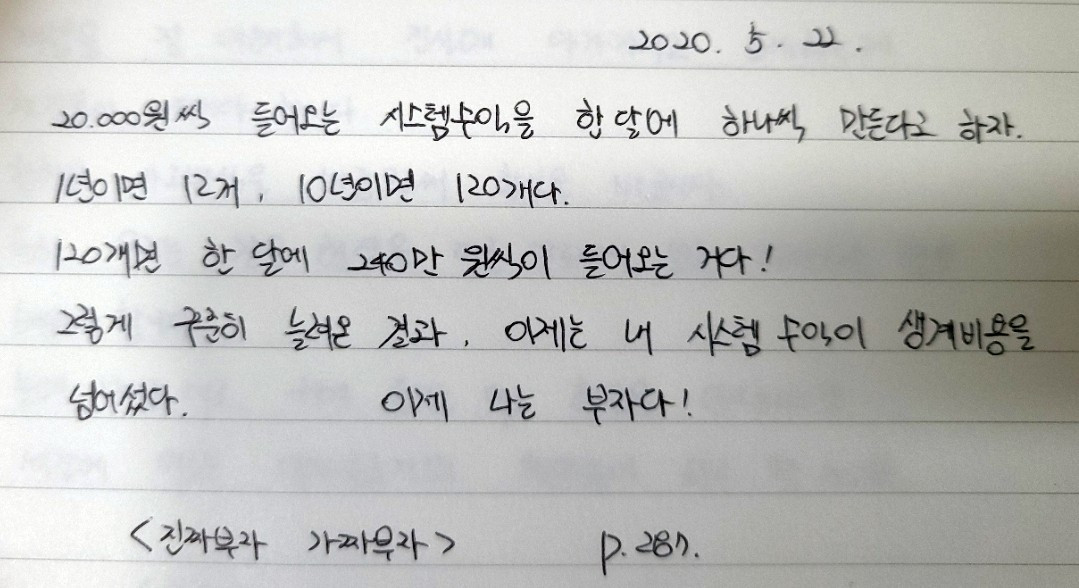 2020. 5. 22.
20.000원씩 들어오는 시스템수익을 한 달에 하나씩 만든다고 하자.
1년이면 12개, 10년이면 120개다.
120개면 한 달에 240만 원씩이 들어오는 거다!
그렇게 꾸준히 늘려온 결과, 이제는 내 시스템 수익이 생계비용을
넘어섰다. 이제 나는 부자다!
<진짜부자 가짜부자> p.287.